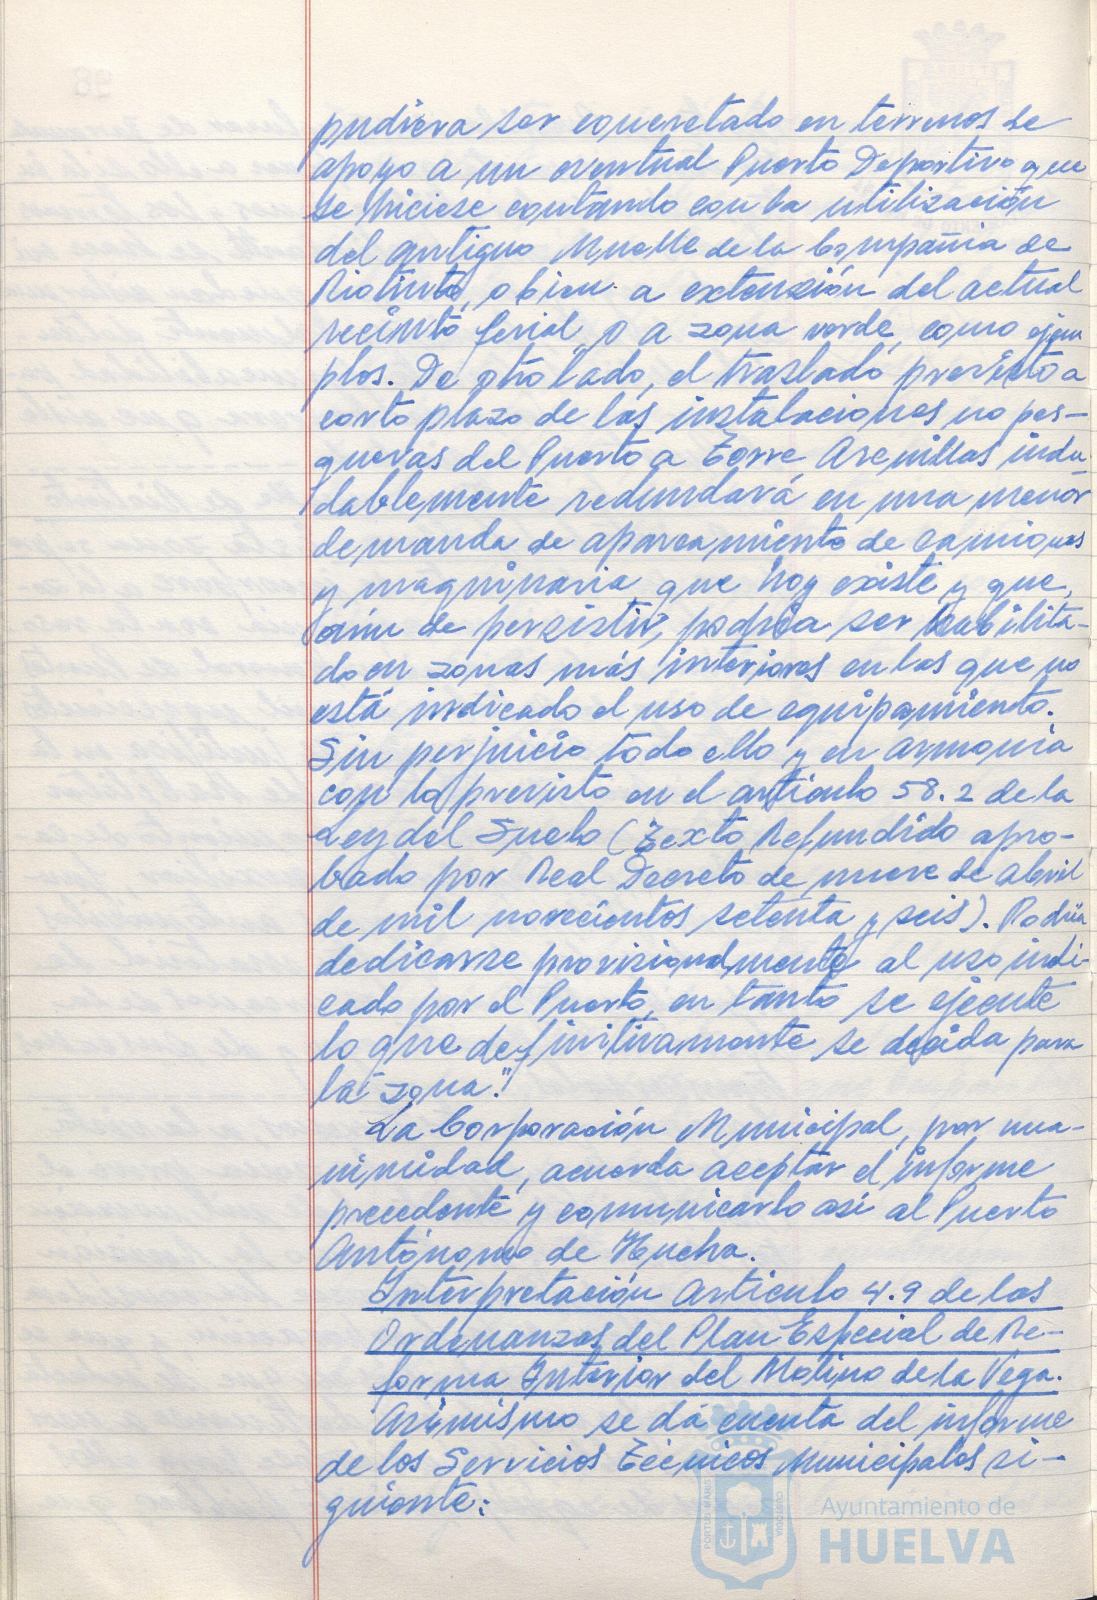 pudiera ser concretado en terrenos de
apoyo a un eventual Puerto Deportivo que
se hiciese contando con la utilización
del antiguo Muelle de la Compañia de
Riotinto, o bien a extensión del actual
recinto ferial, o a zona verde, como ejem
plos. De otro lado, el traslado previsto a
corto plazo de las instalaciones no pes-
queras del Puerto a Torre Arenillas indu-
dablemente redundará en una menor
demanda de aparcamiento de camiones
y maquinaria que hoy existe y que,
aún de persistir, podría ser habilita-
do en zonas más interiores en las que no
está indicado el uso de equipamiento.
Sin perjuicio todo ello y en armonia
con lo previsto en el artículo 58.2 de la
Ley del Suelo (Texto Refundido apro-
bado por Real Decreto de nueve de abril
de mil novecientos setenta y seis). Podría
dedicarse provisionalmente al uso indi-
cado por el Puerto, en tanto se ejecute
lo que definitivamente se decida para
la zona."
La Corporación Municipal, por una-
nimidad, acuerda aceptar el informe
precedente y comunicarlo así al Puerto
Autónomo de Huelva.
Interpretación Artículo 4.9 de las
Ordenanzas del Plan Especial de Re-
forma Interior del Molino de la Vega.
Asimismo se dá cuenta del informe
de los Servicios Técnicos Municipales si-
guiente:
Ayuntamiento de
HUELVA